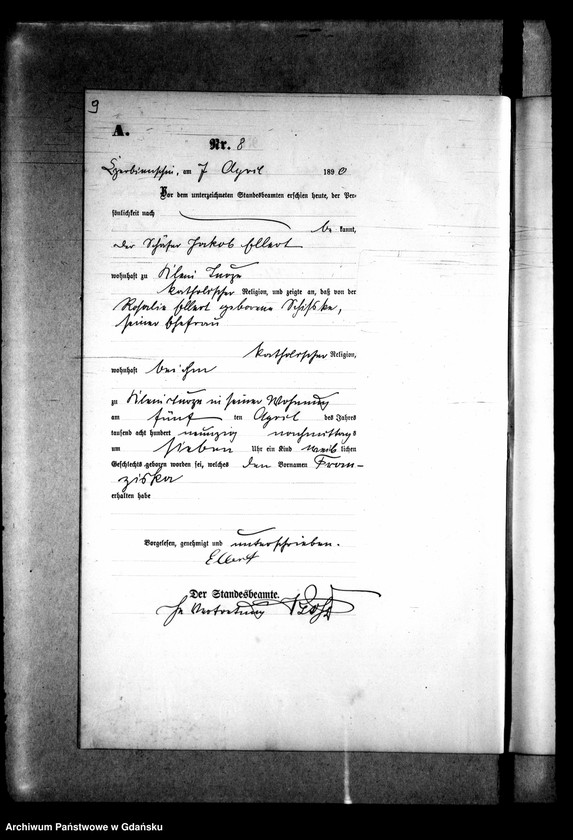 9
A.
Nr. 8
am 7 April 1890
Vor dem unterzeichneten Standesbeamten erschien heute, der Per-
sönlichkeit nach
be kannt,
der Schäfer Jakob Ellert
wohnhaft zu Klein Turze
katholischer Religion, und zeigte an, daß von der
Rosalie Ellert geborene Schiske,
seiner Ehefrau
katholischer Religion,
wohnhaft bei ihm
zu Klein Turze in seiner Wohnung
am fünf ten April des Jahres
tausend acht hundert neunzig nachmittags
um sieben Uhr ein Kind weib lichen
Geschlechts geboren worden sei, welches den Vornamen Fran-
ziska
erhalten habe
Vorgelesen, genehmigt und unterschrieben.
Ellert
Der Standesbeamte.
In Vertretung
Archiwum Państwowe w Gdańsku